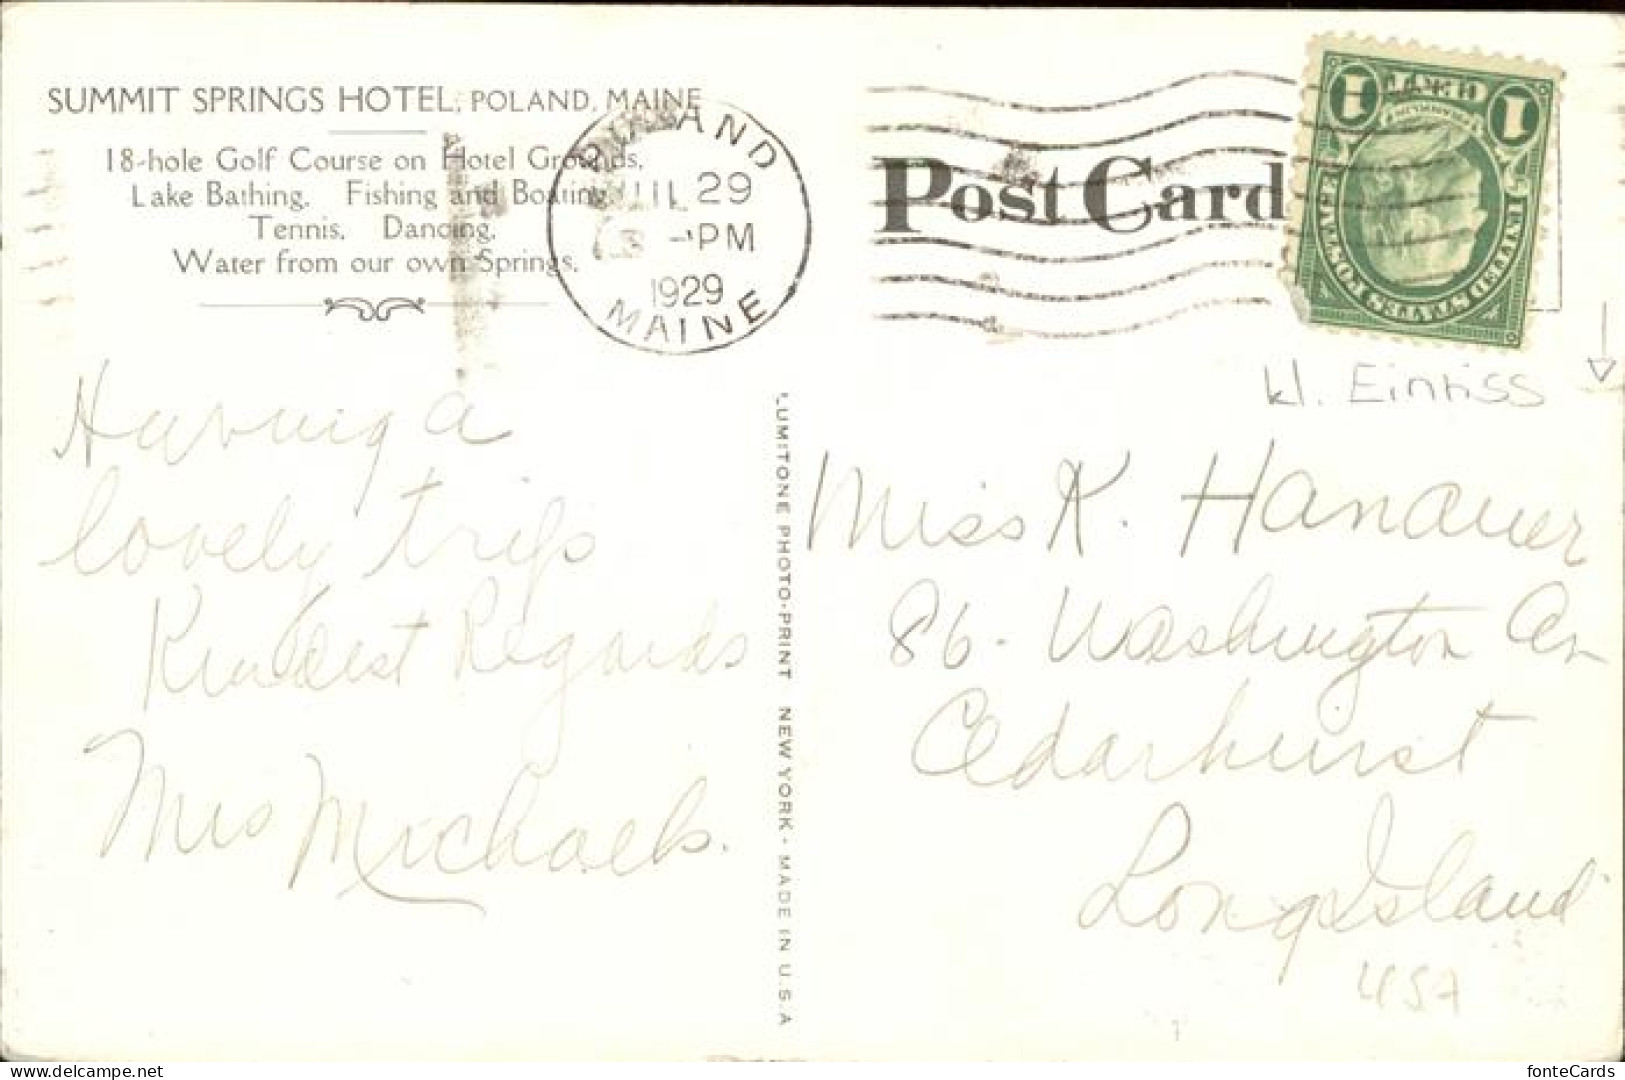 SUMMIT SPRINGS HOTEL, POLAND, MAINE
18-hole Golf Course on Hotel Grounds.
Lake Bathing. Fishing and Boating.
Tennis. Dancing.
Water from our own Springs.
POLAND
JUL 29
3 - PM
1929
MAINE
Post Card
1 1
UNITED STATES POSTAGE
kl. Einriss
Having a
lovely trip
Kindest Regards
Mrs Michaels.
LUMITONE PHOTO-PRINT NEW YORK - MADE IN U.S.A
Miss K. Hanauer
86 - Washington Av
Cedarhurst
Long Island
USA
delcampe.net
fonteCards